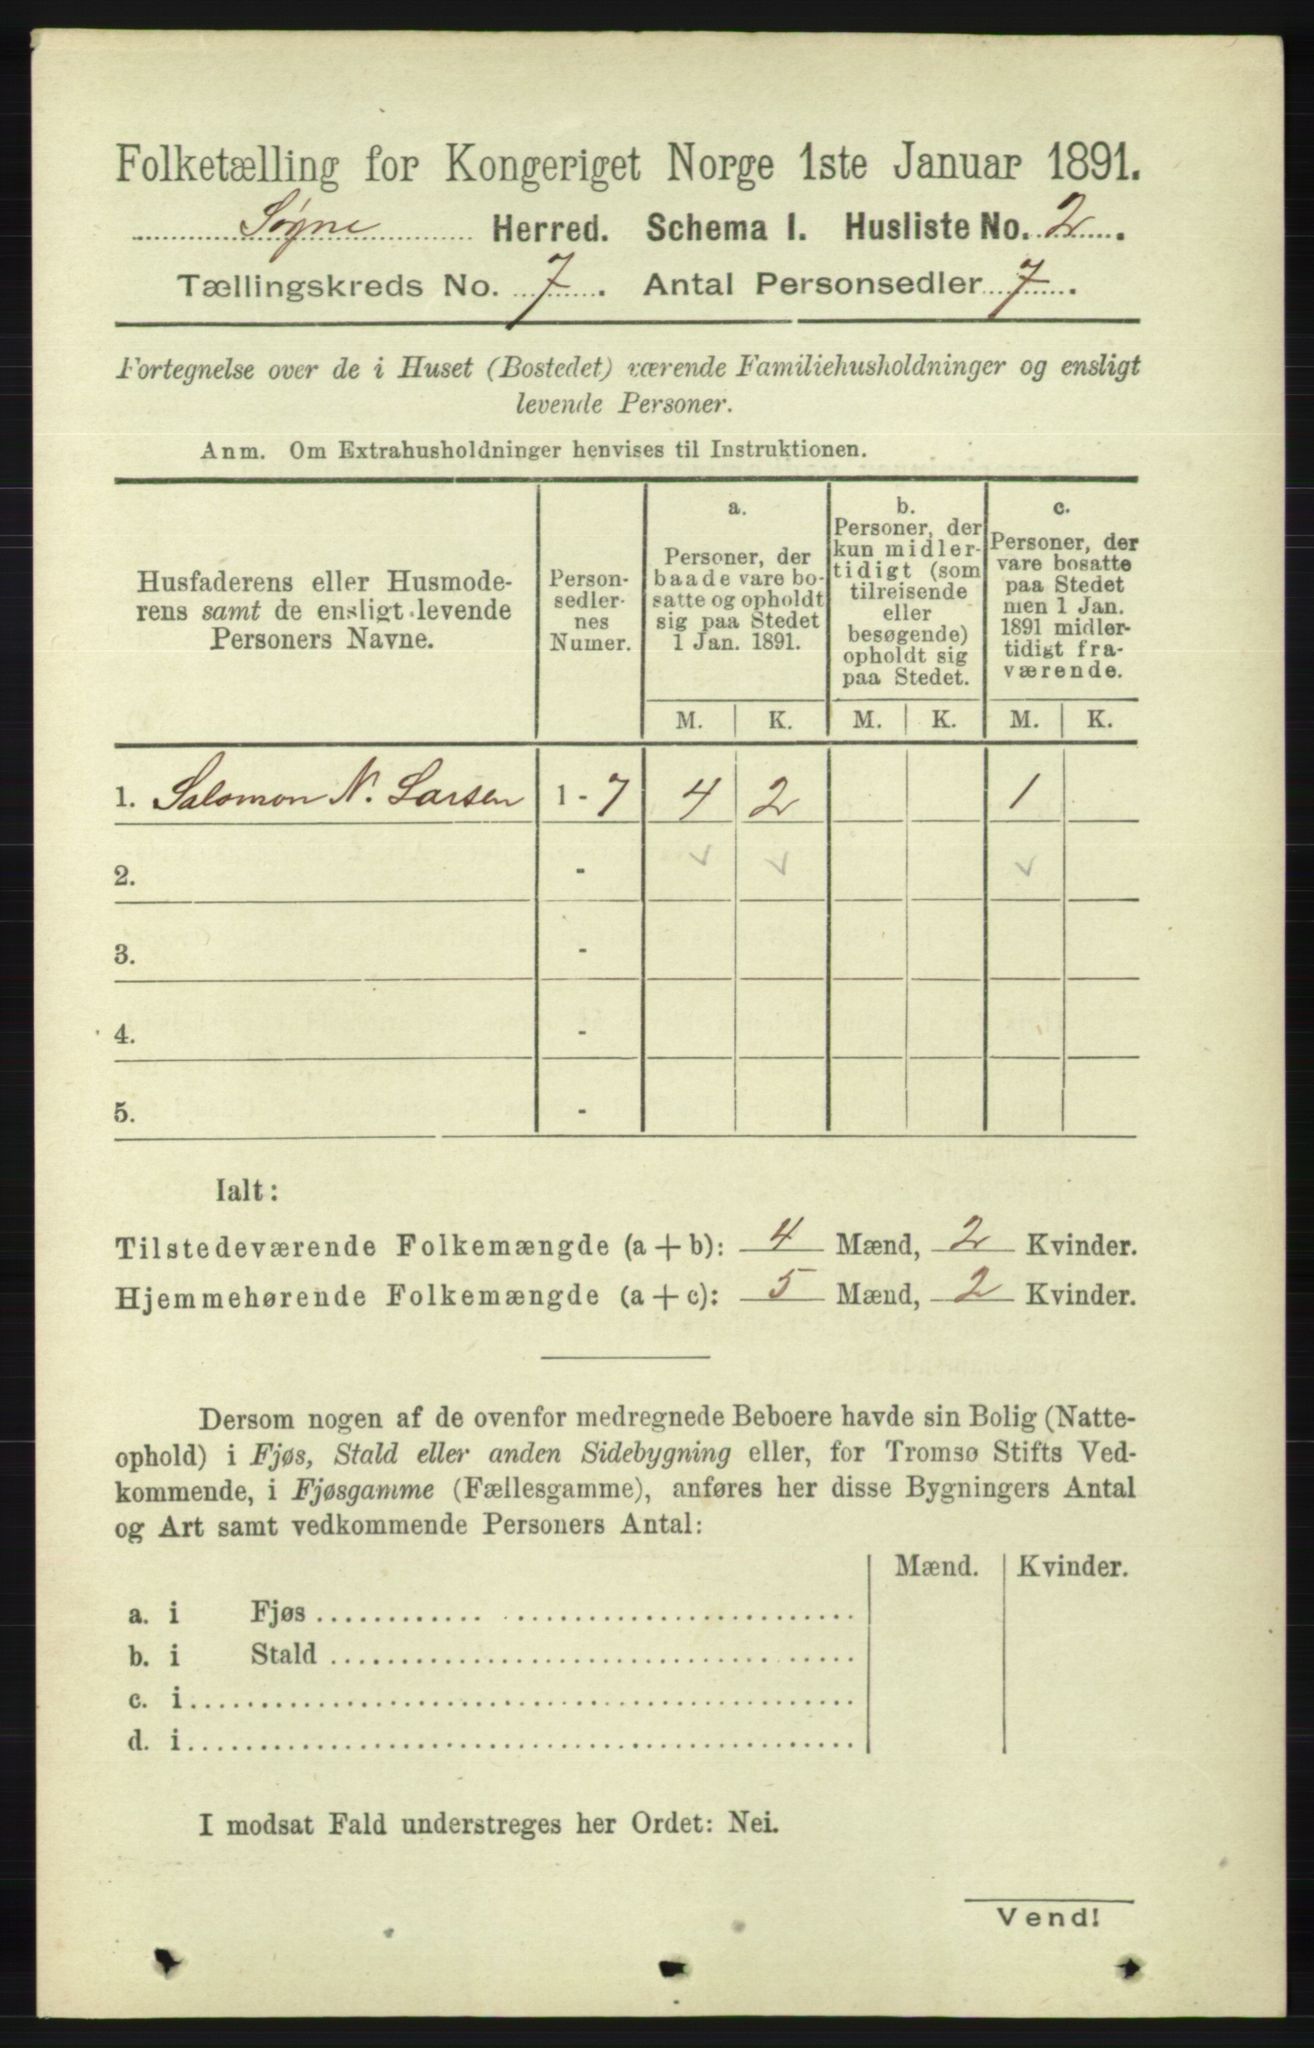 Folketælling for Kongeriget Norge 1ste Januar 1891.
Søgne Herred. Schema I. Husliste No. 2.
Tællingskreds No. 7. Antal Personsedler 7.
Fortegnelse over de i Huset (Bostedet) værende Familiehusholdninger og ensligt
levende Personer.
Anm. Om Extrahusholdninger henvises til Instruktionen.
Husfaderens eller Husmode-
rens samt de ensligt levende
Personers Navne.
Person-
sedler-
nes
Numer.
a.
Personer, der
baade vare bo-
satte og opholdt
sig paa Stedet
1 Jan. 1891.
b.
Personer, der
kun midler-
tidigt (som
tilreisende
eller
besøgende)
opholdt sig
paa Stedet.
c.
Personer, der
vare bosatte
paa Stedet
men 1 Jan.
1891 midler-
tidigt fra-
værende.
M. K. M. K. M. K.
1. Salomon N. Larsen 1 - 7 4 2 1
2. -
3. -
4. -
5. -
Ialt:
Tilstedeværende Folkemængde (a + b): 4 Mænd, 2 Kvinder.
Hjemmehørende Folkemængde (a + c): 5 Mænd, 2 Kvinder.
Dersom nogen af de ovenfor medregnede Beboere havde sin Bolig (Natte-
ophold) i Fjøs, Stald eller anden Sidebygning eller, for Tromsø Stifts Ved-
kommende, i Fjøsgamme (Fællesgamme), anføres her disse Bygningers Antal
og Art samt vedkommende Personers Antal:
Mænd. Kvinder.
a. i Fjøs
b. i Stald
c. i
d. i
I modsat Fald understreges her Ordet: Nei.
Vend!